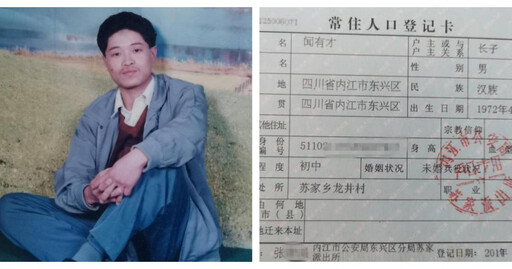 225000071
常住人口登记卡
名 闻有才 户主或与户主关系 长子
性别 男
地 四川省内江市东兴区 民族 汉族
贯 四川省内江市东兴区 出生日期 1972年
其他住址 宗教信仰
身份 编号 51102 身高
程度 初中 婚姻状况 未婚 兵役状况
所 苏家乡龙井村 职业
由何地
市(县)
地迁来本址
内江市公安局东兴区分局苏家
派出所 登记日期: 201 年